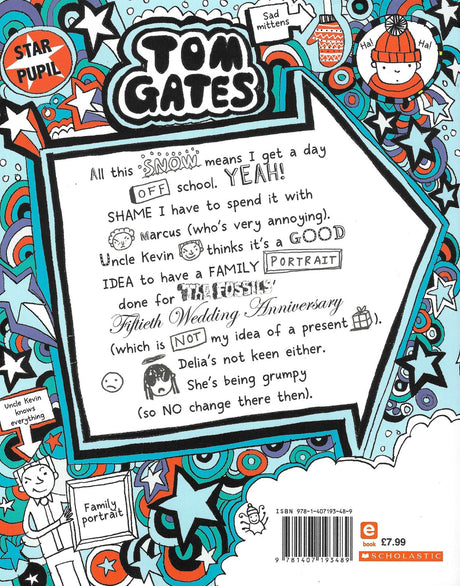 Sad
mittens
Ha!
Ha!
STAR
PUPIL
TOM
GATES
All this SNOW means I get a day
OFF school. YEAH!
SHAME I have to spend it with
Marcus (who's very annoying).
Uncle Kevin thinks it's a GOOD
IDEA to have a FAMILY PORTRAIT
done for THE FOSSILS'
Fiftieth Wedding Anniversary
(which is NOT my idea of a present).
Delia's not keen either.
She's being grumpy
(so NO change there then).
Uncle Kevin
knows
everything
Family
portrait
ISBN 978-1-407193-48-9
9 781407 193489
e
book
£7.99
SCHOLASTIC